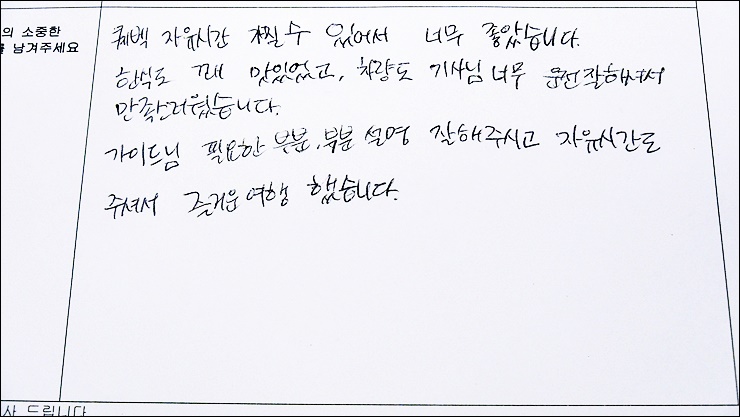 의 소중한
남겨주세요
퀘백 자유시간 가질 수 있어서 너무 좋았습니다.
한식도 꽤 맛있었고, 차량도 기사님 너무 운전잘하셔서
만족스러웠습니다.
가이드님 필요한 부분, 부분 설명 잘해주시고 자유시간도
주셔서 즐거운 여행 했습니다.
사 드립니다